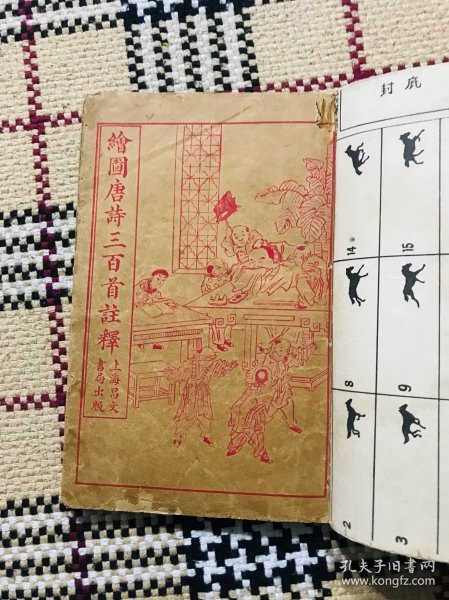 繪圖唐詩三百首註釋
上海昌文
書局出版
封底
14
15
8
9
2
3
孔夫子旧书网
www.kongfz.com